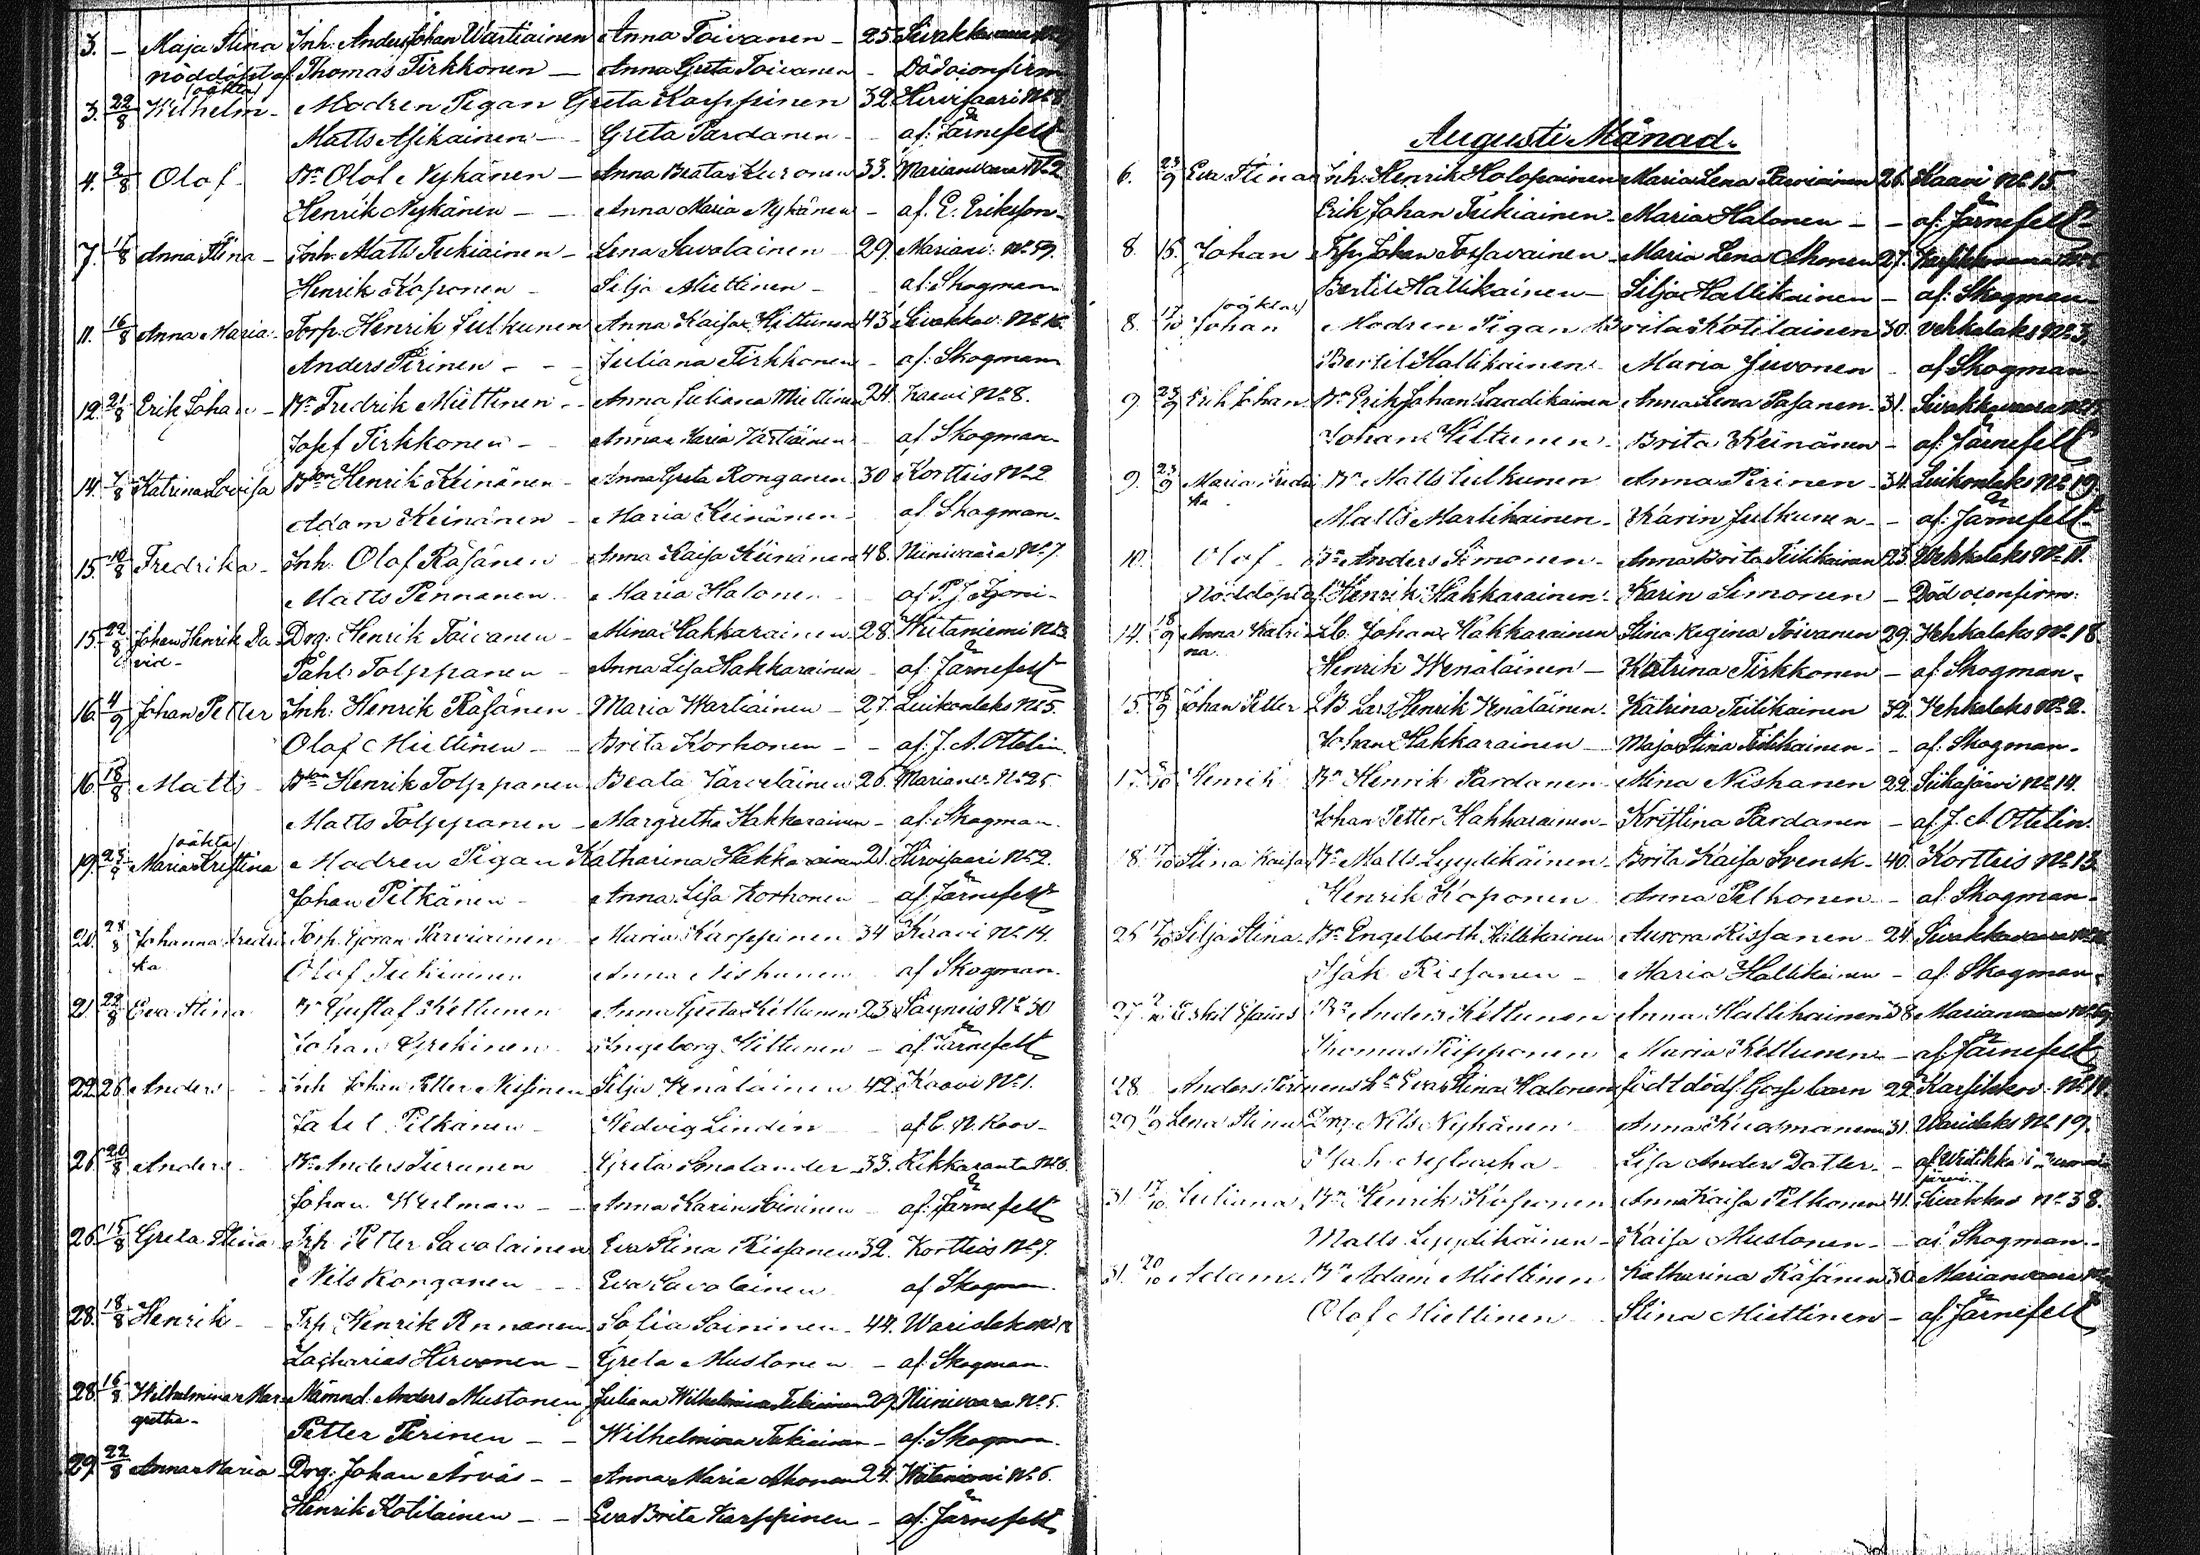 3. – Maja Stina Inh: Anders Johan Wartiainen Anna Toivanen – 25. Sivakkavaara
nöddöpt af Thomas Tirkkonen – Anna Greta Toivanen – Död oconfirm
(oäkta)
3. 22/8 Wilhelm – Modren Pigan Greta Karppinen 32. Hirvisaari No 8
Matts Asikainen – Greta Pardanen – af: Järnefelt
4. 2/8 Olof – Bn Olof Nykänen – Anna Beata Kuronen 33. Marianvaara No 2.
Henrik Nykänen – – Anna Maria Nykänen – af. E. Eriksson –
7. 16/8 Anna Stina – Inh. Matts Tukiainen – Lena Savolainen 29. Marianv: No 59.
Henrik Koponen – Silja Miettinen – af: Skogman
11. 16/8 Anna Maria – Torp. Henrik Julkunen Anna Kaisa Hiltunen 43 Sivakkav: No 16.
Anders Pirinen – – – Juliana Tirkkonen – af: Skogman
12. 21/8 Erik Johan – Bn Fredrik Miettinen – Anna Juliana Miettinen 24. Kaavi No 8.
Josef Tirkkonen – Anna Maria Vartiainen – af Skogman
14. 7/8 Katrina Lovisa Bson Henrik Keinänen – Anna Greta Ronganen 30 Kortteis No 2
Adam Keinänen – Maria Keinänen – af. Skogman.
15. 10/8 Fredrika – Inh: Olof Räsänen – Anna Kaisa Keinänen 48. Niinivaara No 7.
Matts Pennanen – Maria Halonen – af P. J.
15. 22/8 Johan Henrik Da Drg: Henrik Toivanen – Mina Hakkarainen 28. Wiitaniemi No
vid – Påhl Tolppanen – Anna Lisa Hakkarainen – af. Järnefelt
16. 4/9 Johan Petter Inh: Henrik Räsänen – Maria Wartiainen – 27. Luikonlaks No 5.
Olof Miettinen – – Brita Korhonen – – af: J. A. Ottelin.
16. 18/8 Matts – Bson Henrik Tolppanen Beata Järveläinen 26. Marianv. No 25.
Matts Tolppanen – Margretha Hakkarainen – af. Skogman.
(oäkta)
19. Maria Kristina Modren Pigan Katharina Hakkarainen 21. Hirvisaari No 2.
Johan Pitkänen – Anna Lisa Korhonen – af. Järnefelt
20. 28/8 Johanna Fredri Torp. Göran Parviainen – Maria Karppinen 34 Kaavi No 14.
ka. Olof Tukiainen Anna Nishanen af Skogman.
21. 22/8 Eva Stina Bn Gustaf Kettunen Anna Greta Kettunen 23. Säyneis No 30
Johan Ingeborg Hiltunen – af Järnefelt
22. 26 Anders – Inh Johan Petter Nissinen Silja Venäläinen 42. Kaavi No 1.
Pitkänen – Hedvig Lindin – af C. N.
26. 20/8 Anders – Bn Anders Turunen Greta Smolander 33. Kikkaranta No 8.
Johan – Anna Karin Soininen – af. Järnefelt
26. 15/8 Greta Stina Trp. Petter Savolainen Eva Stina Rissanen 32. Kortteis No 7.
Nils Ronganen – – Eva Savolainen af Skogman.
28. 18/8 Henrik – Trp. Henrik Sofia Soininen – 44. Waridlaks
Zacharias Hirvonen – Greta Mustonen – af. Skogman.
28. 16/8 Wilhelmina Mar Nämnd. Anders Mustonen Juliana Wilhelmina Tukiainen 29. Niinivaara No 5.
gretha – Petter Pirinen – – Wilhelmina Tukiainen – af. Skogman.
29. 22/8 Anna Maria Drg. Johan – – Anna Maria Ahonen 24. Wiitaniemi No 6.
Henrik Kotilainen – – Eva Brita Karppinen – af. Järnefelt
Augusti Månad.
6. 23/9 Eva Stina Inh. Henrik Holopainen Maria Lena Parviainen 26. Kaavi No 15
Erik Johan Tukiainen – Maria Halonen – – af: Järnefelt
8. 15. Johan Trp: Johan Maria Lena Ahonen 27.
Bertil Hallikainen – Silja Hallikainen – af: Skogman
(oäkta)
8. 17/10 Johan Modren Pigan Brita Kotilainen 30. Vehkalaks No 3.
Bertil Hallikainen – Maria Juvonen – af Skogman
9. 23/9 Erik Johan Bn Erik Johan Laadikainen Anna Lena Pasanen 31. Sivakkavaara
Johan Hiltunen – Brita Keinänen – af: Järnefelt
9. 23/9 Maria Fredri Bn Matts Julkunen Anna Pirinen – 34. Luikonlaks No 19.
ka. Matts Martikainen – Karin Julkunen – – af. Järnefelt
10. Olof – Bn Anders Simonen – Anna Brita Tiilikainen 23. Vehkalaks No 11.
Nöddöpt af Henrik Hakkarainen – Karin Simonen – Död oconfirm:
14. 18/9 Anna Katri Lb. Johan Hakkarainen Stina Regina Toivanen 29. Vehkalaks No 18
na. Henrik Wenäläinen – Katrina Tirkkonen – af Skogman.
15. Johan Petter LB Lars Henrik Venäläinen – Katrina Tiilikainen 32. Vehkalaks No 2.
Johan Hakkarainen – Maja Stina Tiilikainen – – af: Skogman –
17. Henrik Bn Henrik Pardanen – Mina Nishanen 22. Siikajärvi No 14.
Johan Petter Hakkarainen – Kristina Pardanen – af. J. A. Ottelin.
18. 17/10 Stina Kaisa Bn Matts Lyydikäinen – Brita Kaisa Svensk – 40. Kortteis No 13.
Henrik Koponen – Anna Pelkonen – – af Skogman.
25 Silja Stina – Bn Engelberth Hallikainen Aurora Rissanen – 24. Sivakkavaara
Isak Rissanen – Maria Hallikainen – af: Skogman.
27. Eskil Esaias Bn Anders Kettunen Anna Hallikainen 38 Marianvaara No
Thomas Maria Kettunen – af. Järnefelt
28. Anders Pirinens h:u Eva Stina Halonen födt dödf. Gosse barn 22. Karsikkov. No 14.
29. Lena Stina Drg. Nils Nykänen – Anna Kuosmanen 31. Waridlaks No 19.
Lisa Anders Datter – af Wrdikka i
31. 17/10 Juliana Bn Henrik Koponen Anna Kaisa Pelkonen 41. Sivakkav No 38.
Matts Lyydikäinen – Kaisa Mustonen – – af Skogman.
31. 20/10 Adam – Bn Adam Miettinen Katharina Räsänen 30. Marianvaara
Olof Miettinen – Stina Miettinen – af. Järnefelt